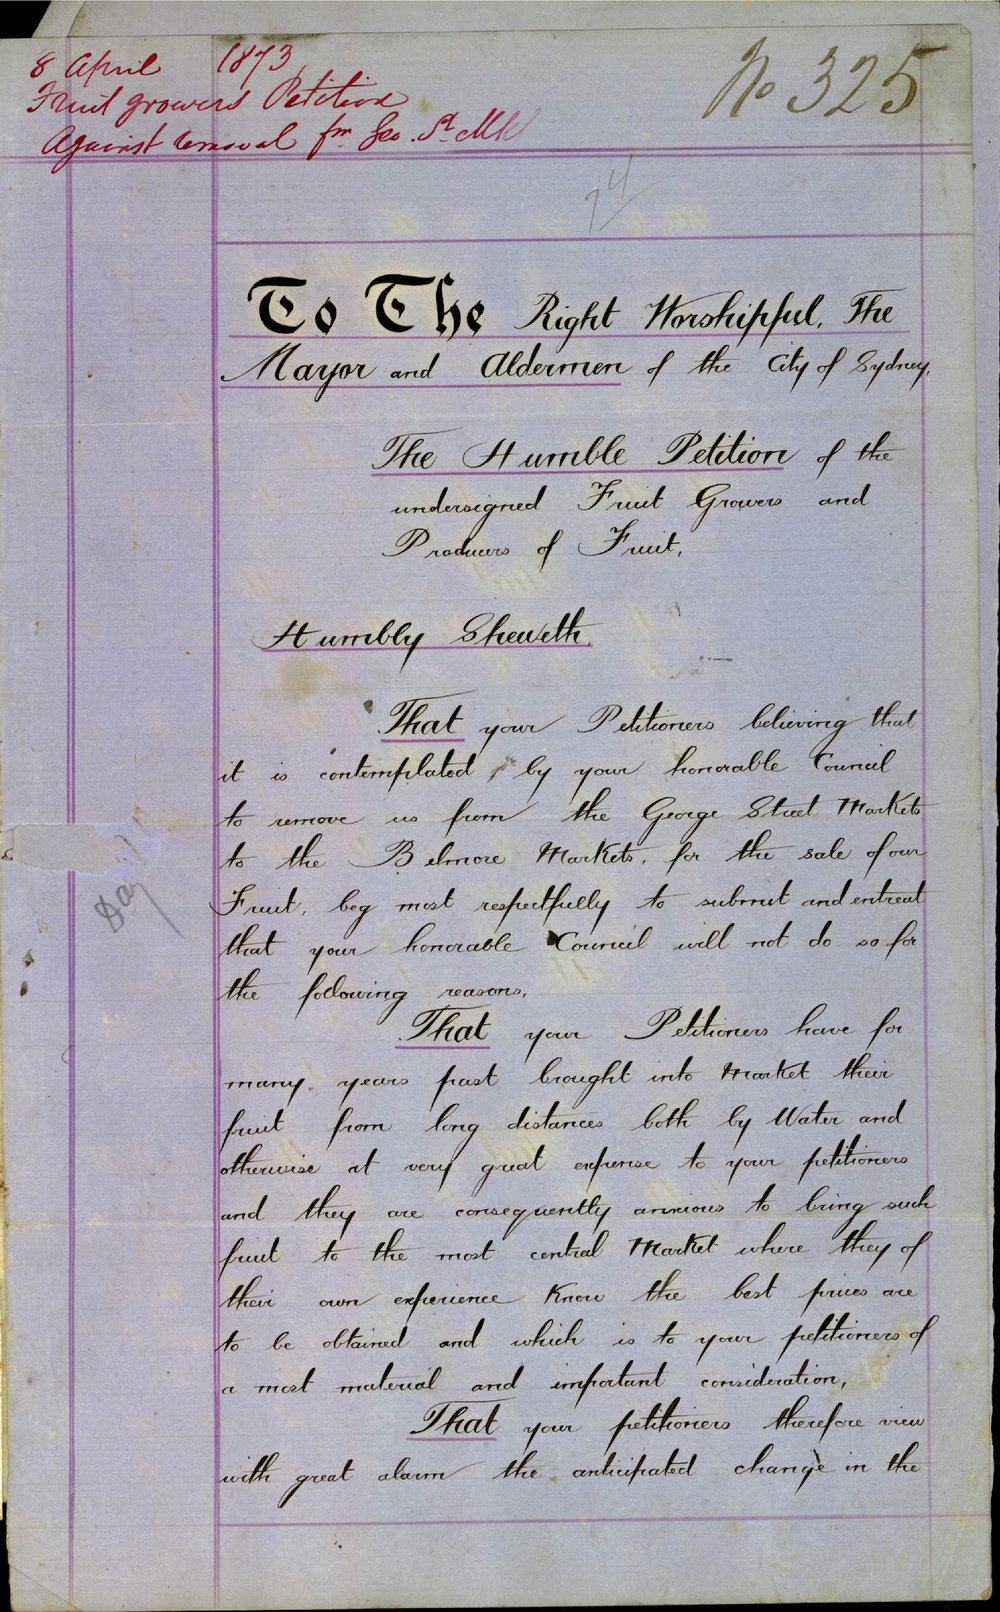 8 April 1873
Fruit growers Petition
Against removal fm Geo. St Mkt
No 325
74
To The Right Worshipful, The
Mayor and Aldermen of the City of Sydney,
The Humble Petition of the
undersigned Fruit Growers and
Producers of Fruit,
Humbly Sheweth,
That your Petitioners believing that
it is contemplated by your honorable Council
to remove us from the George Street Markets
to the Belmore Markets, for the sale of our
Fruit, beg most respectfully to submit and entreat
that your honorable Council will not do so for
the following reasons,
That your Petitioners have for
many years past brought into Market their
fruit from long distances both by Water and
otherwise at very great expense to your petitioners
and they are consequently anxious to bring such
fruit to the most central Market where they of
their own experience know the best prices are
to be obtained and which is to your petitioners of
a most material and important consideration,
That your petitioners therefore view
with great alarm the anticipated change in the